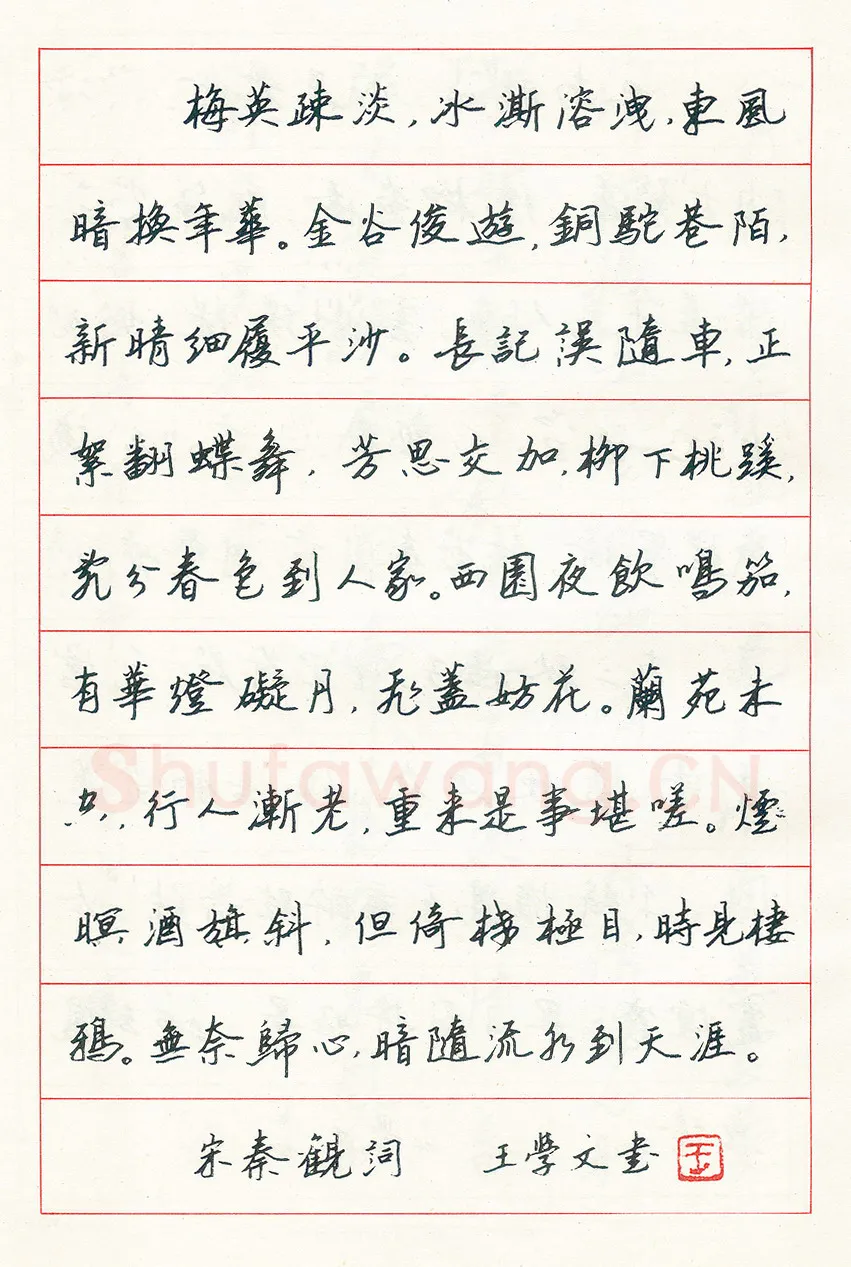 梅英疎淡，冰澌溶洩，東風
暗換年華。金谷俊遊，銅駝巷陌，
新晴細履平沙。長記誤隨車，正
絮翻蝶舞，芳思交加，柳下桃蹊，
亂分春色到人家。西園夜飲鳴笳，
有華燈礙月，飛蓋妨花。蘭苑未
空，行人漸老，重来是事堪嗟。煙
暝酒旗斜，但倚樓極目，時見棲
鴉。無奈歸心，暗隨流水到天涯。
宋秦觀詞 王學文書 王
Shufawang.CN